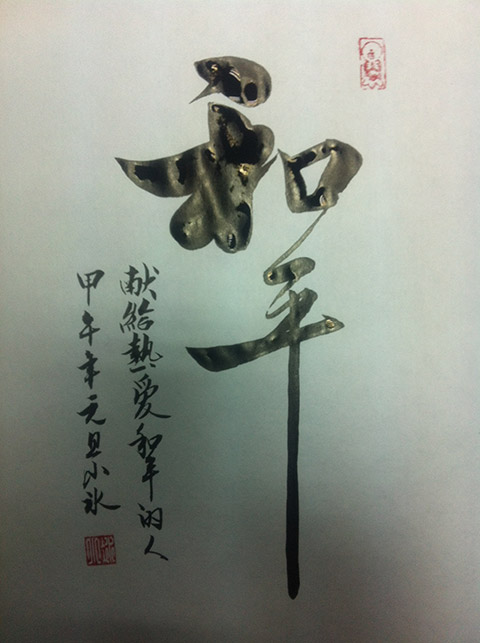 和平
献给熱爱和平的人
甲午年元旦小冰